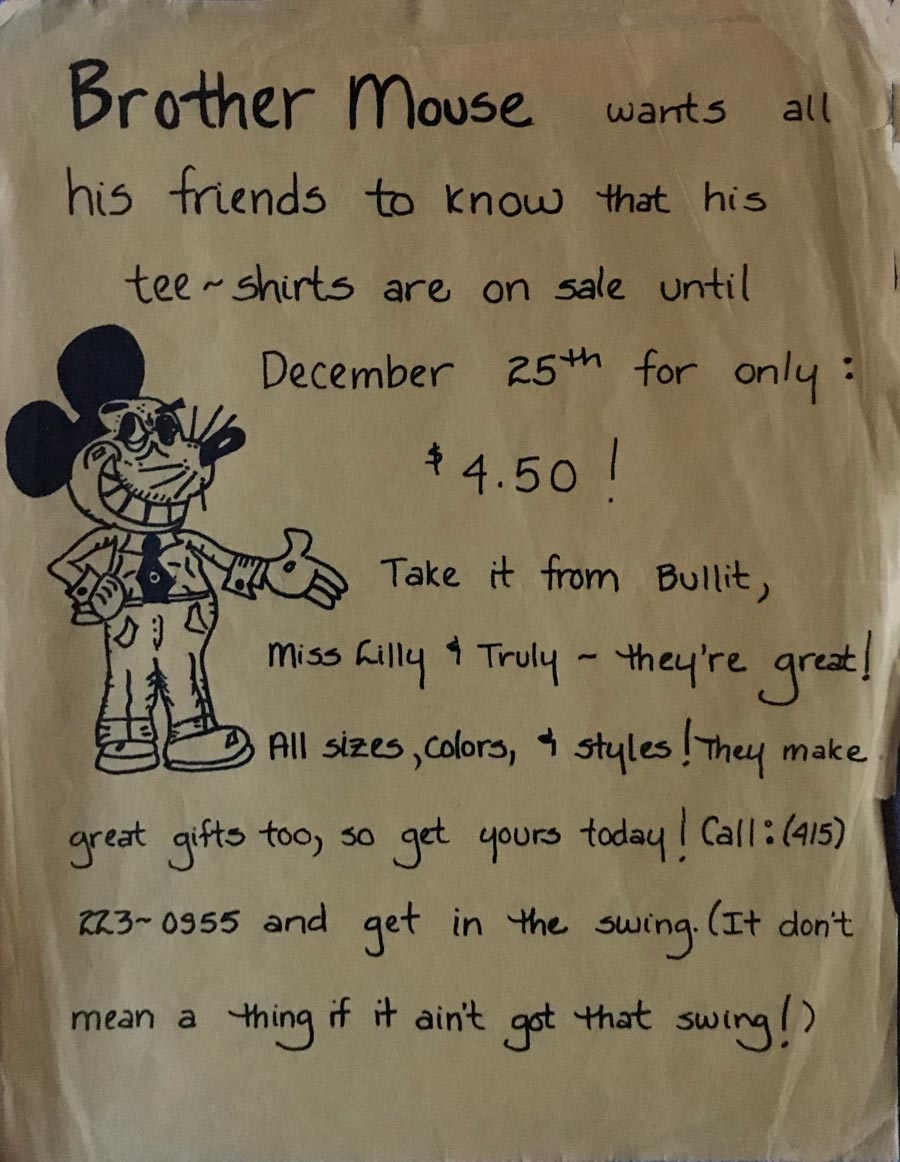 Brother Mouse wants all
his friends to know that his
tee~shirts are on sale until
December 25th for only:
$4.50!
Take it from Bullit,
Miss Lilly & Truly ~ they're great!
All sizes, colors, & styles! They make
great gifts too, so get yours today! Call: (415)
223~0955 and get in the swing. (It don't
mean a thing if it ain't got that swing!)